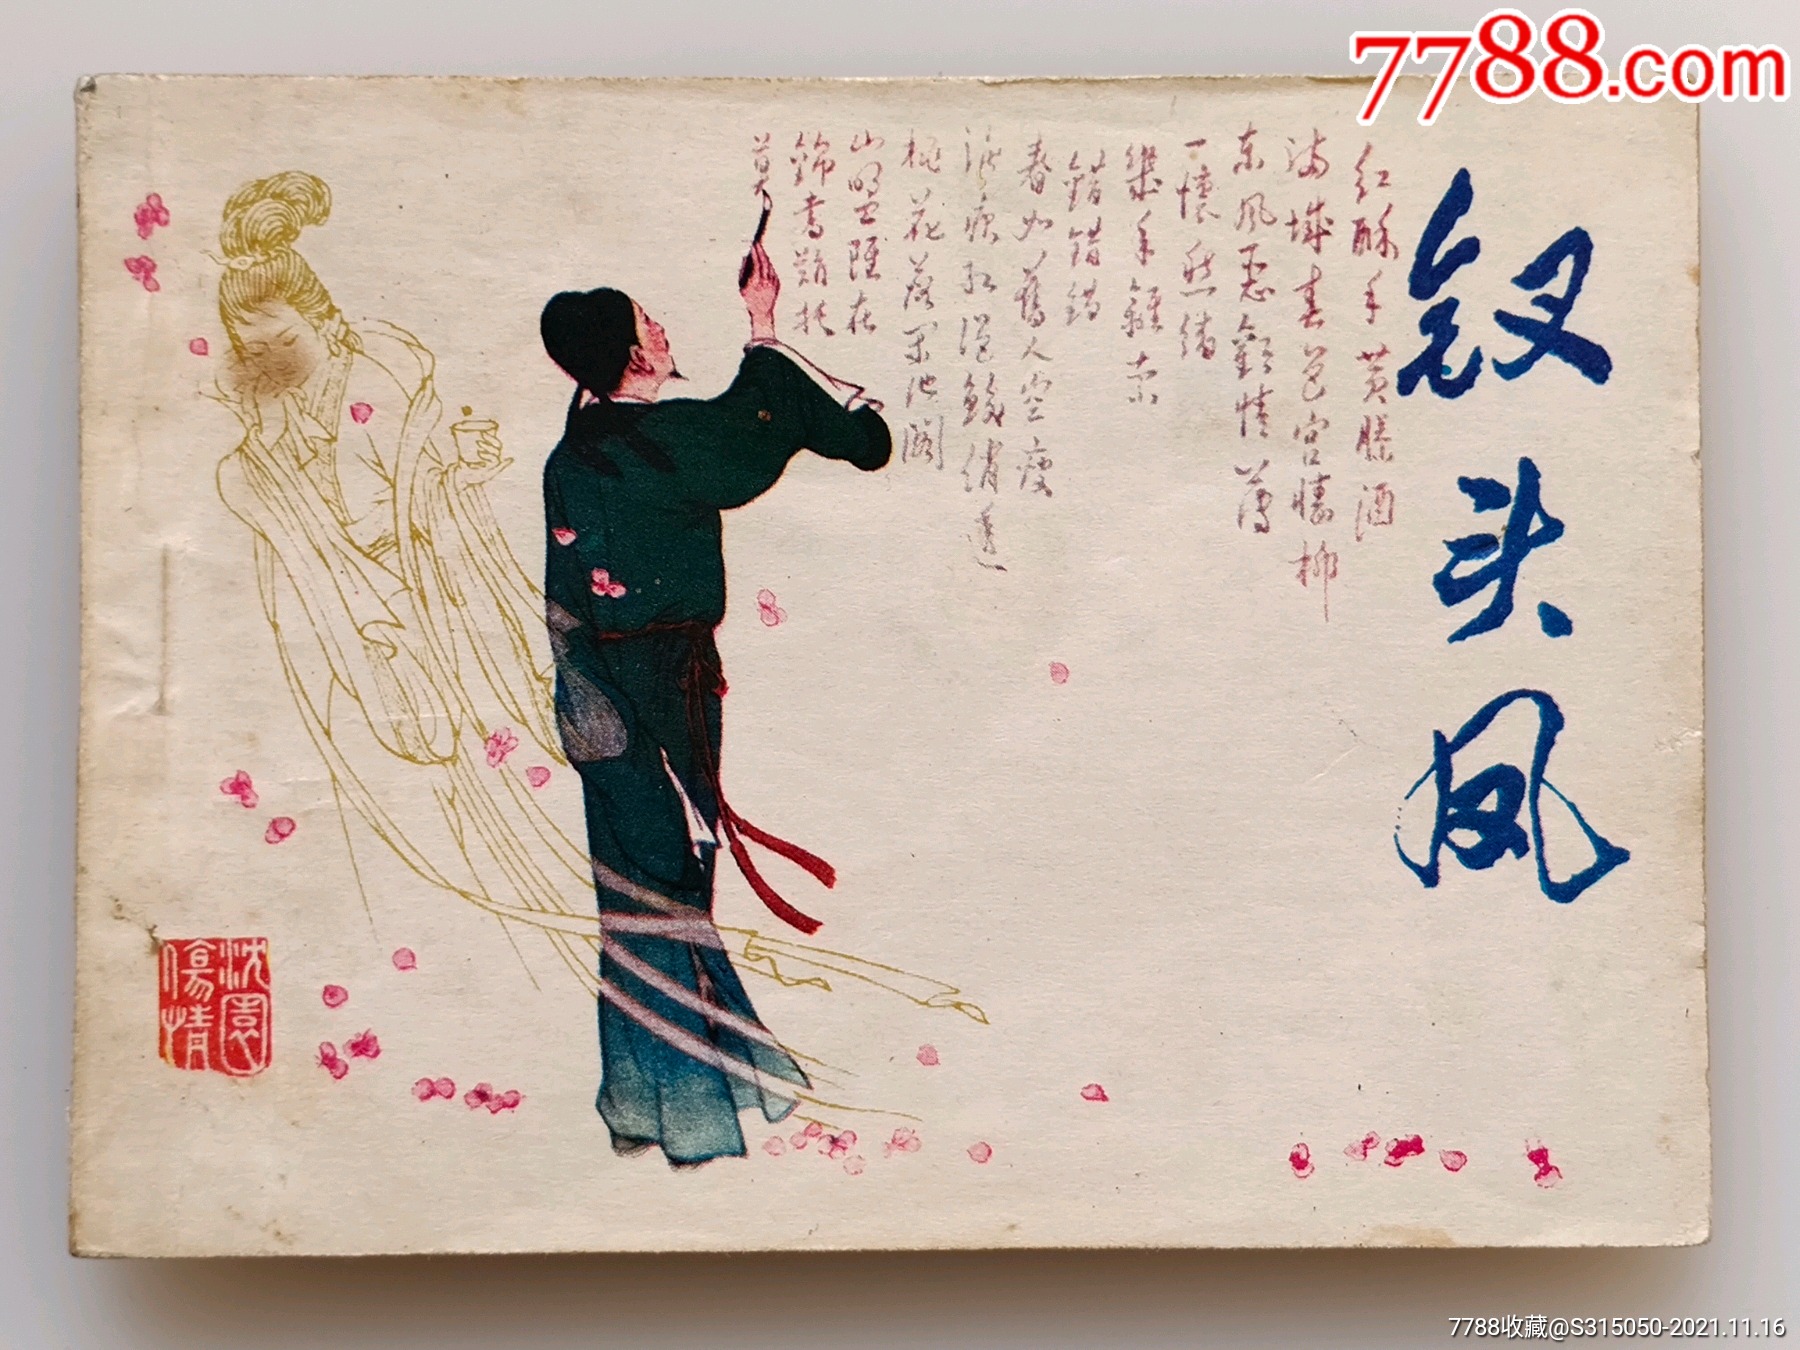 7788.com
钗头凤
红酥手黄縢酒
满城春色宫墙柳
东风恶欢情薄
一懷愁绪
幾年離索
錯錯錯
春如舊人空瘦
泪痕红浥鲛绡透
桃花落闲池阁
山盟雖在
錦書難托
莫
沈園
傷情
7788收藏@S315050-2021.11.16